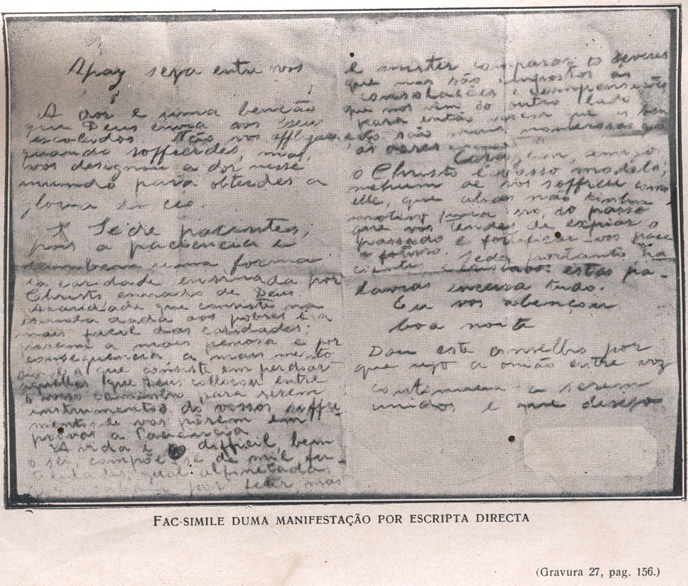 A paz seja entre vos
A dor é uma benção
que Deus envia aos seus
escolhidos. Não vos afflijaes,
quando soffrerdes, mas
dor nesse
mundo para obterdes a
gloria do ceo.
Sêde pacientes,
pois a paciencia é
tambem uma forma
da caridade ensinada por
Christo enviado de Deus
A caridade que consiste na
esmola dada aos pobres é a
mais facil das caridades.
a mais penosa e por
consequencia, a mais
é a que consiste em perdoar
aquelles que Deus collocou entre
o vosso caminho para serem
instrumentos do vosso soffri-
mento e vos pôrem em
prova a Paciencia
A vida é difficil bem
o sei compõe-se de mil
alpinetadas
por ferir, mas
é mister comparar os deveres
que nos são impostos às
consolações e compensações
que nos vêm do outro lado
para então verem que
são mais numerosas que
as dores
Coragem, amigo
o Christo é vosso modelo;
nenhum de vós soffreu como
elle, que alias não tinha
motivo para isso, ao passo
que vos tendes de expiar o
passado e fortificar-vos para
o futuro. Sede portanto pa-
cientes estas pa-
lavras encerra tudo.
Eu vos abençou
boa noite
Dou este conselho por
que vejo a união entre voz
continuem a serem
unidos é que desejo
FAC-SIMILE DUMA MANIFESTAÇÃO POR ESCRIPTA DIRECTA
(Gravura 27, pag. 156.)